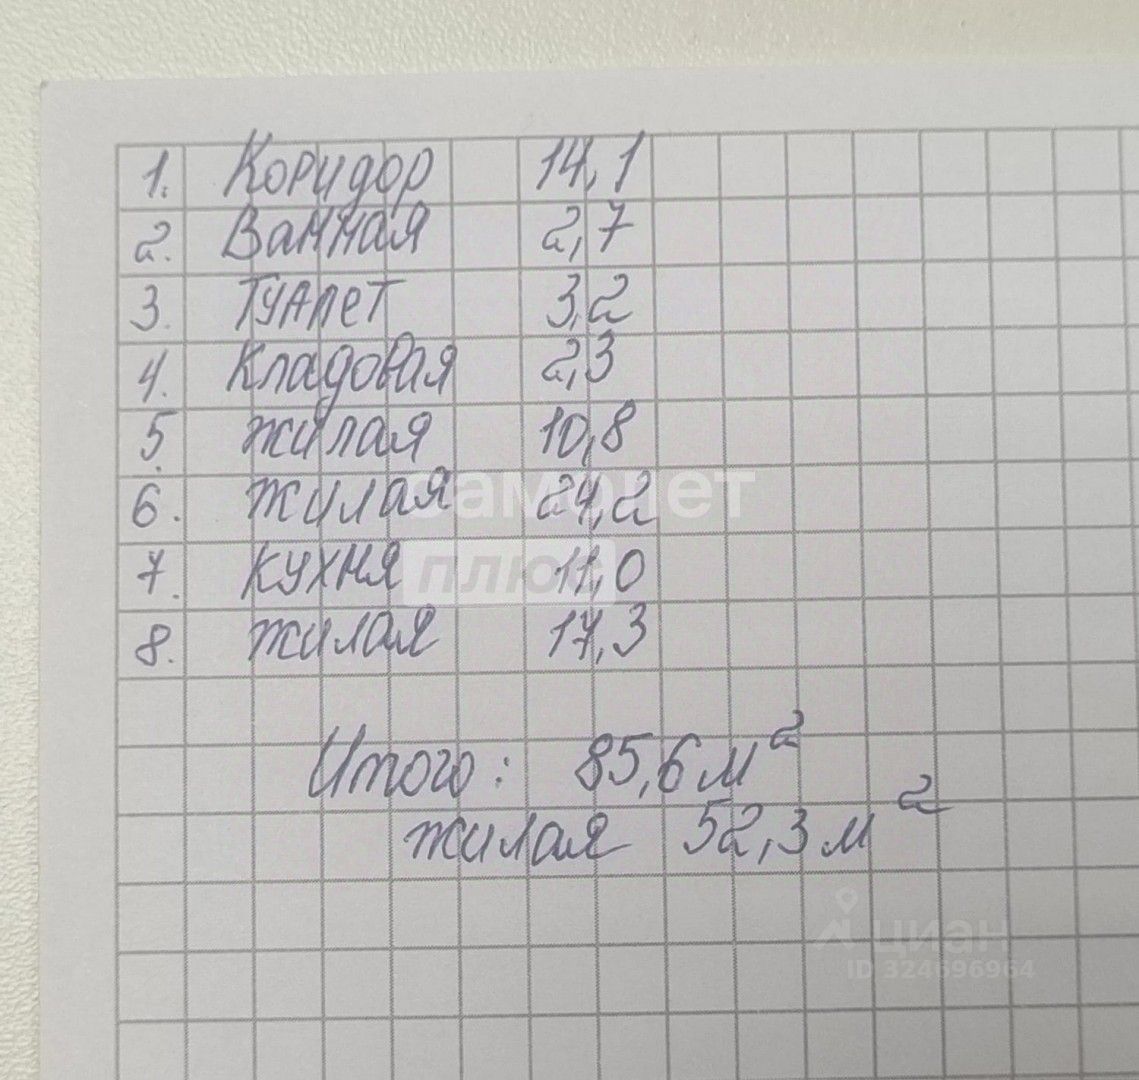 1. Коридор 14,1
2. Ванная 2,7
3. Туалет 3,2
4. Кладовая 2,3
5. жилая 10,8
6. жилая 24,2
самолет
плюс
7. кухня 11,0
8. жилая 17,3
Итого: 85,6 м²
жилая 52,3 м²
циан
ID 324696964